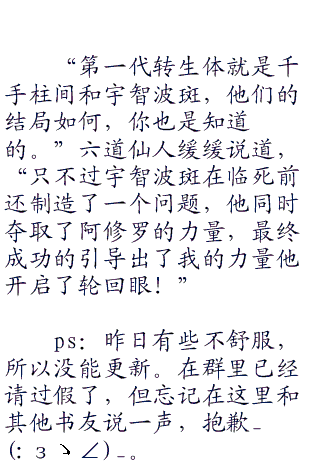 “第一代转生体就是千
手柱间和宇智波斑，他们的
结局如何，你也是知道
的。”六道仙人缓缓说道，
“只不过宇智波斑在临死前
还制造了一个问题，他同时
夺取了阿修罗的力量，最终
成功的引导出了我的力量他
开启了轮回眼！”
ps：昨日有些不舒服，
所以没能更新。在群里已经
请过假了，但忘记在这里和
其他书友说一声，抱歉_
(:зゝ∠)_。